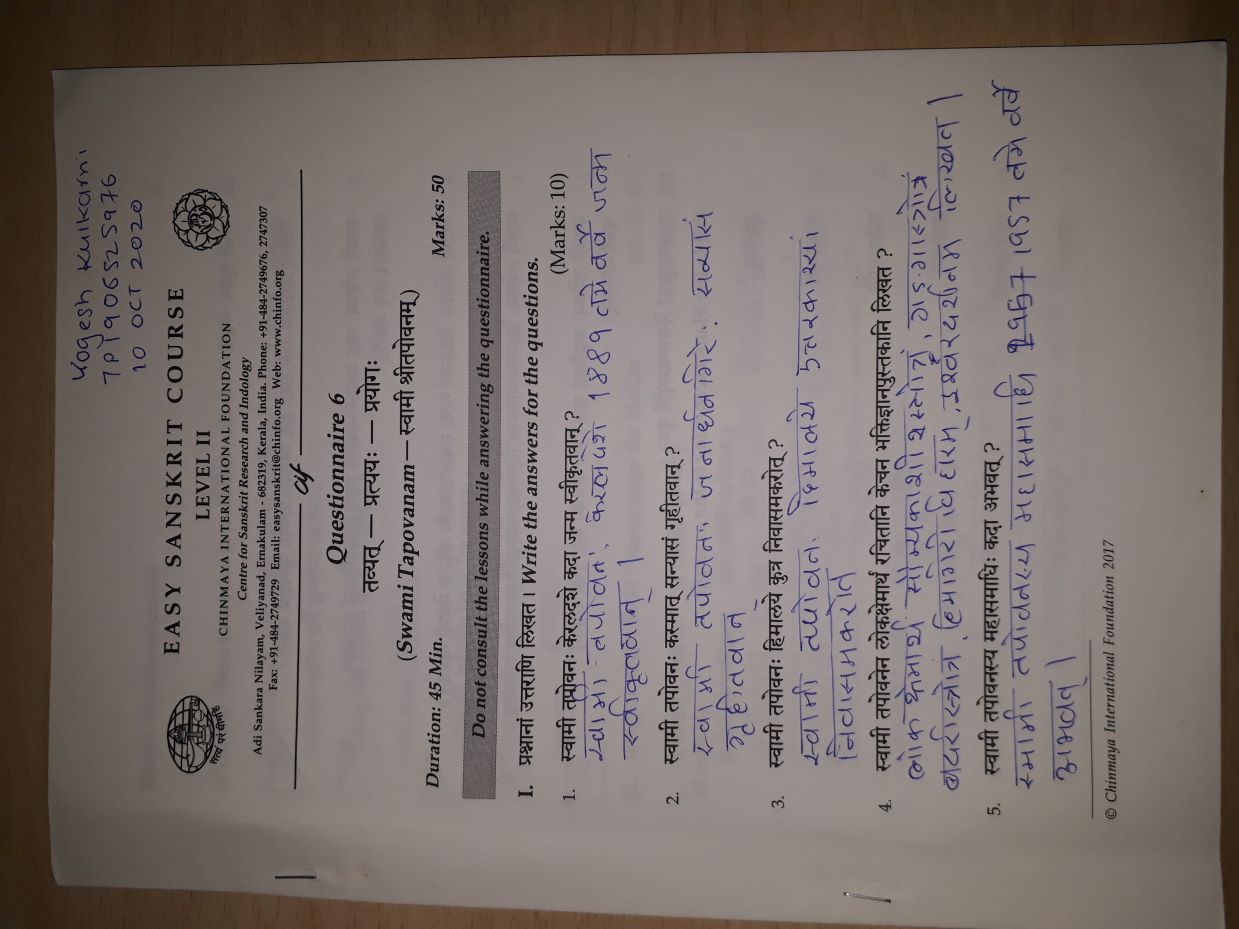 Yogesh Kulkarni
7P1906525976
10 OCT 2020
EASY SANSKRIT COURSE
LEVEL II
CHINMAYA INTERNATIONAL FOUNDATION
Centre for Sanskrit Research and Indology
Adi Sankara Nilayam, Veliyanad, Ernakulam - 682319, Kerala, India. Phone: +91-484-2749676, 2747307
Fax: +91-484-2749729 Email: easysanskrit@chinfo.org Web: www.chinfo.org
सत्यं परं धीमहि
cif
Questionnaire 6
तव्यत् — प्रत्ययः — प्रयोगः
(Swami Tapovanam — स्वामी श्रीतपोवनम् )
Duration: 45 Min. Marks: 50
Do not consult the lessons while answering the questionnaire.
I. प्रश्नानां उत्तराणि लिखत । Write the answers for the questions.
(Marks: 10)
1. स्वामी तपोवनः केरलदेशे कदा जन्म स्वीकृतवान् ?
स्वामी तपोवनः केरलदेशे 1889 तमे वर्षे जन्म
स्वीकृतवान् ।
2. स्वामी तपोवनः कस्मात् सन्यासं गृहीतवान् ?
स्वामी तपोवनः जनार्धनगिरेः सन्यासं
गृहीतवान्
3. स्वामी तपोवनः हिमालये कुत्र निवासमकरोत् ?
स्वामी तपोवनः हिमालये उत्तरकाश्यां
निवासमकरोत
4. स्वामी तपोवनेन लोकक्षेमार्थं रचितानि केचन भक्तिज्ञानपुस्तकानि लिखत ?
लोक क्षेमार्थ सौम्यकाशीशस्तोत्रं, गङ्गास्त्रोत्रं
बदरीस्त्रोत्रं, हिमगिरी विहारम्, इश्वरदर्शनम लिखत ।
5. स्वामी तपोवनस्य महासमाधिः कदा अभवत् ?
स्मामी तपोवनस्य महासमाधि 1957 तमे वर्षे
अभवत् ।
© Chinmaya International Foundation 2017